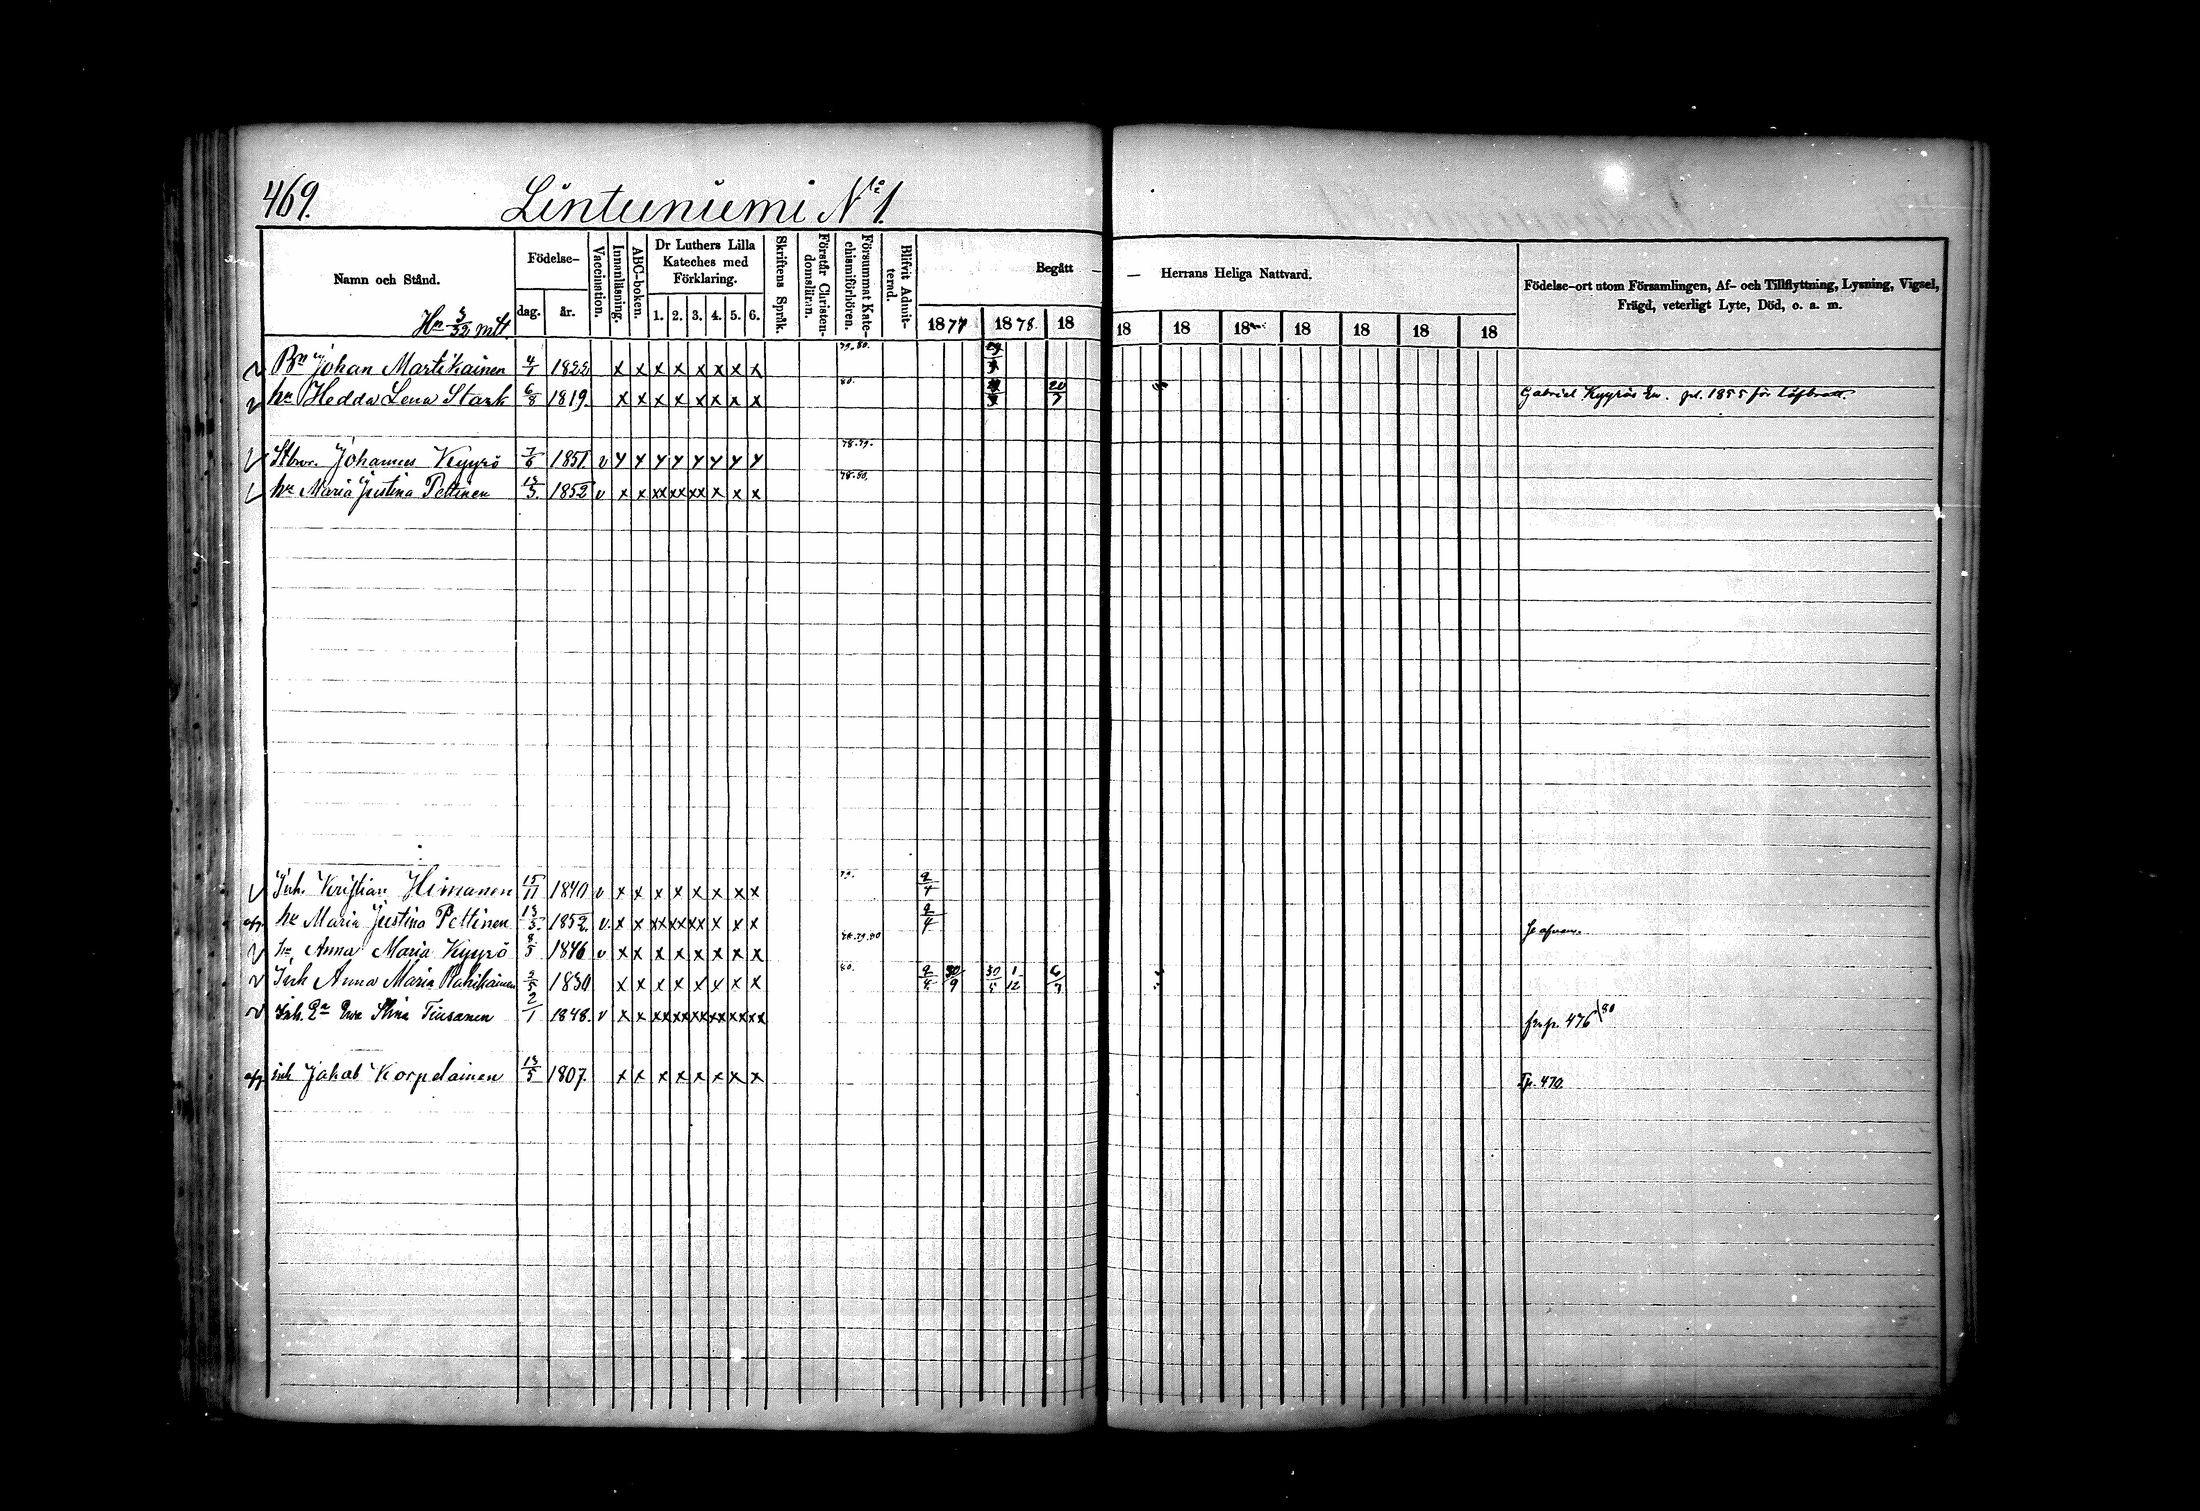 469. Lintuniemi No 1.
Namn och Stånd. Födelse- Vaccination. Innanläsning. ABC-boken. Dr Luthers Lilla Kateches med Förklaring. Skriftens Språk. Förstår Christendomsläran. Försummat Katechismiförhören. Blifvit Admitterad. Begått — Herrans Heliga Nattvard. Födelse-ort utom Församlingen, Af- och Tillflyttning, Lysning, Vigsel, Frägd, veterligt Lyte, Död, o. a. m.
Hn 3/32 mtl. dag. år. 1. 2. 3. 4. 5. 6. 1877 1878 18 18 18 18 18 18 18 18
Bn Johan Martikainen 4/1 1822 x x x x x x x x 79.80.
hu Hedda Lena Stark 6/8 1819. x x x x x x x x 80. 20/7 Gabriel Kyyrös Enk. pl. 1855 för löfbrott.
Stbror. Johannes Kyyrö 7/6 1851. v x x x x x x x x 78.79.
hu Maria Justina Pettinen 13/3. 1852 v x x xx xx xx x x x 78.80.
Inh. Kristian Himanen 15/11 1840 v x x x x x x x x 79. 2/4
afg. hu Maria Justina Pettinen 13/3. 1852. v. x x xx xx xx x x x 2/4 Se ofvan.
hu Anna Maria Kyyrö 8/5 1846 v x x x x x x x x 78.79.80
Inh Anna Maria Rahikainen 5/5 1830 x x x x x x x x 80. 2/4 30/9 30/5 1/12 6/7
Inh. Ea Eva Stina Tiusanen 2/1 1848. v x x xx xx xx xx xx xx frp. 476 /80
afg inh Jakob Korpelainen 13/5 1807. x x x x x x x x Tp. 470.